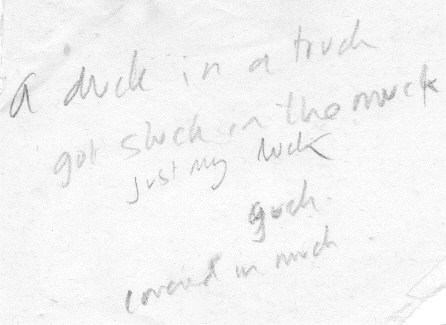 A duck in a truck
got stuck in the muck
just my luck
yuck.
covered in muck.